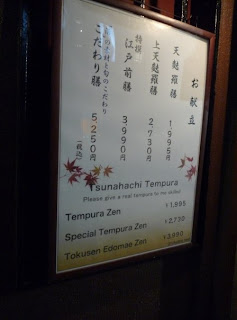 お献立
天麩羅膳 1,995円
上天麩羅膳 2,730円
特撰
江戸前膳 3,990円
こだわり膳 5,250円
(税込)
Tsunahachi Tempura
Please give a real tempura to me skilled
Tempura Zen ¥1,995
Special Tempura Zen ¥2,730
Tokusen Edomae Zen ¥3,990